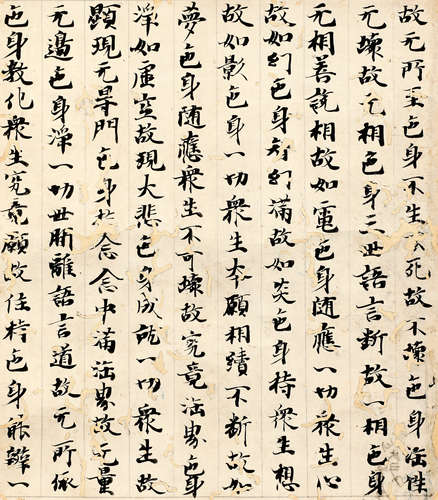 故无所至色身不生不死故不壞色身法性
无壞故无相色身三世語言斷故一相色身
无相善說相故如電色身随應一切衆生心
故如幻色身知幻滿故如炎色身持衆生想
故如影色身一切衆生本願相續不断故如
夢色身随應衆生不可壞故究竟法界色身
淨如虛空故現大悲色身成就一切衆生故
顯現无㝵門色身於念念中滿法界故无量
无邊色身淨一切世所離語言道故无所依
色身教化衆生究竟願故住持色身能辦一